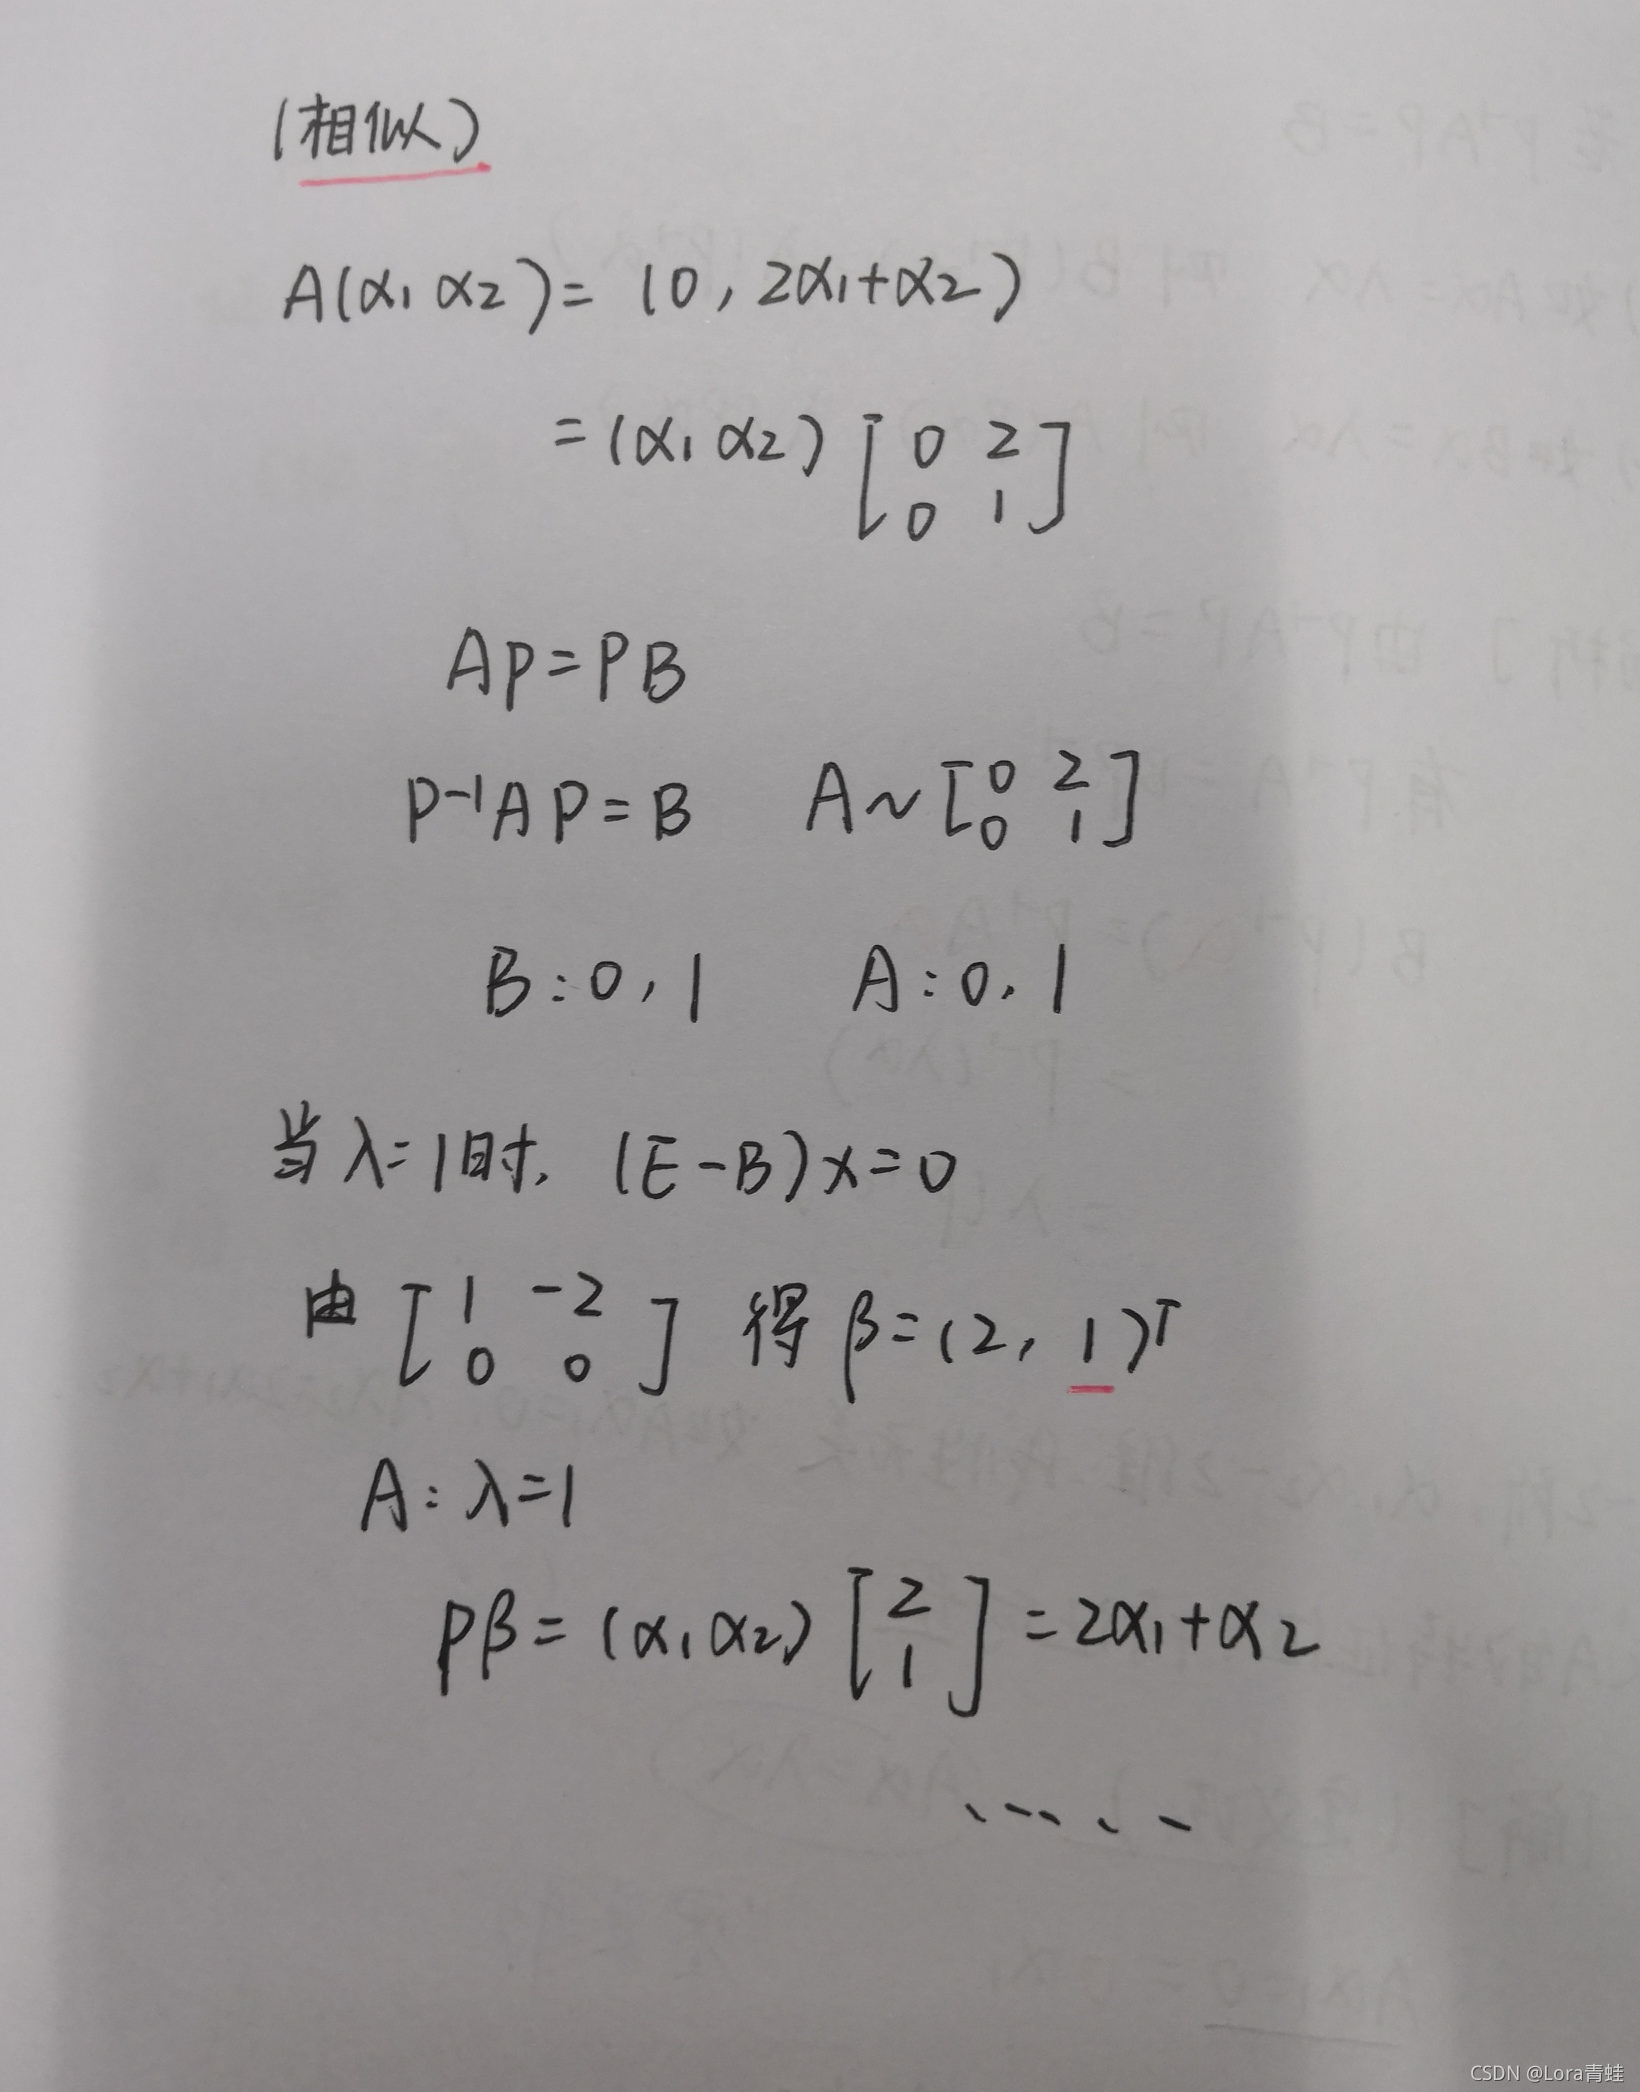 (相似)
A(α₁ α₂)= (0, 2α₁+α₂)
=(α₁ α₂) [0 2
0 1]
AP=PB
P⁻¹AP=B A~[0 2
0 1]
B:0, 1 A:0, 1
当λ=1时, (E-B)x=0
由 [1 -2
0 0] 得 β=(2, 1)ᵀ
A: λ=1
Pβ= (α₁ α₂) [2
1] =2α₁+α₂
......
CSDN @Lora青蛙